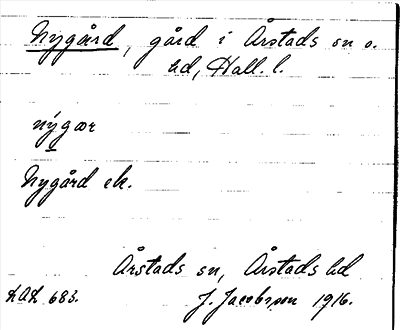 Nygård, gård i Årstads sn o.
hd, Hall. l.
nýgær
Nygård ek.
Årstads sn, Årstads hd
LAL 683. J. Jacobsson 1916.